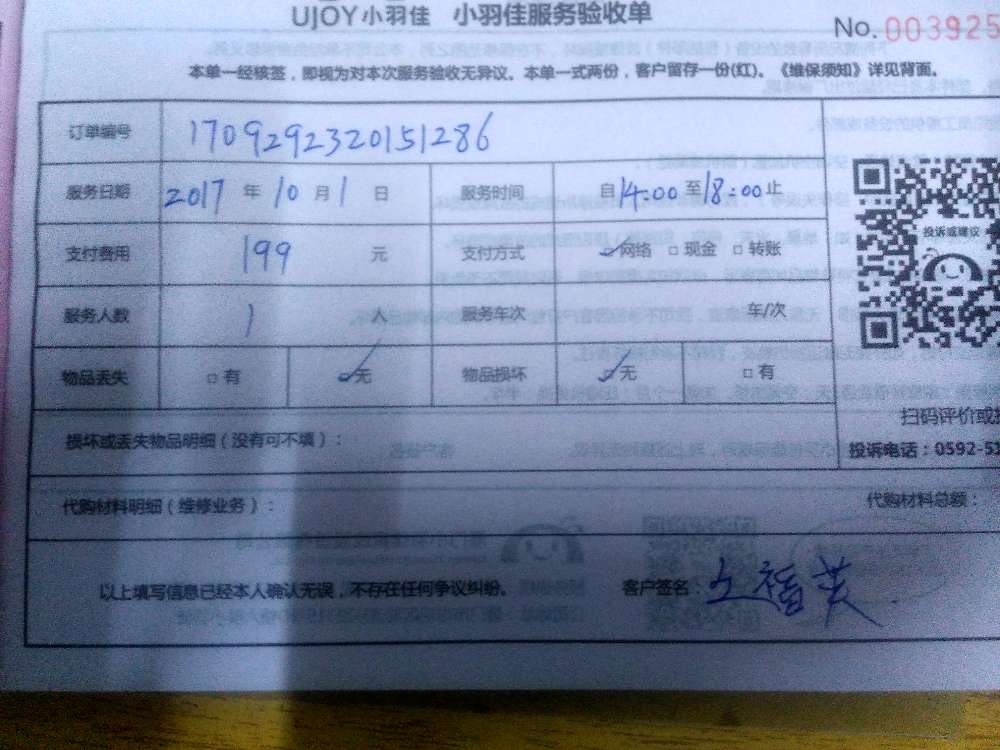 UJOY小羽佳 小羽佳服务验收单
No. 003925
本单一经核签，即视为对本次服务验收无异议。本单一式两份，客户留存一份(红)。《维保须知》详见背面。
订单编号 1709292320151286
服务日期 2017 年 10 月 1 日 服务时间 自14:00至18:00止
投诉或建议
支付费用 199 元 支付方式 ☑网络 □现金 □转账
服务人数 1 人 服务车次 车/次
物品丢失 □有 ☑无 物品损坏 ☑无 □有
扫码评价或
损坏或丢失物品明细（没有可不填）：
投诉电话：0592-5
代购材料明细（维修业务）： 代购材料总额：
以上填写信息已经本人确认无误，不存在任何争议纠纷。 客户签名：